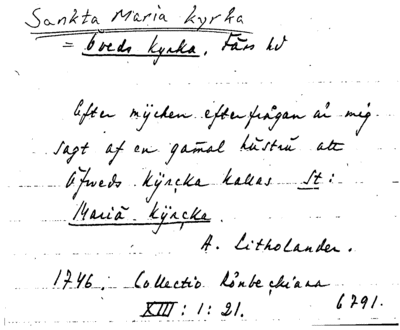 Sankta Maria kyrka
= Öveds kyrka, Färs hd
Efter mÿcken efterfrågan är mig
sagt af en gamal hustru att
Öfweds Kÿrcka kallas St:
Mariä Kÿrcka.
A. Litholander.
1746. Collectio Rönbeckiana
XIII: 1: 21. 6791.